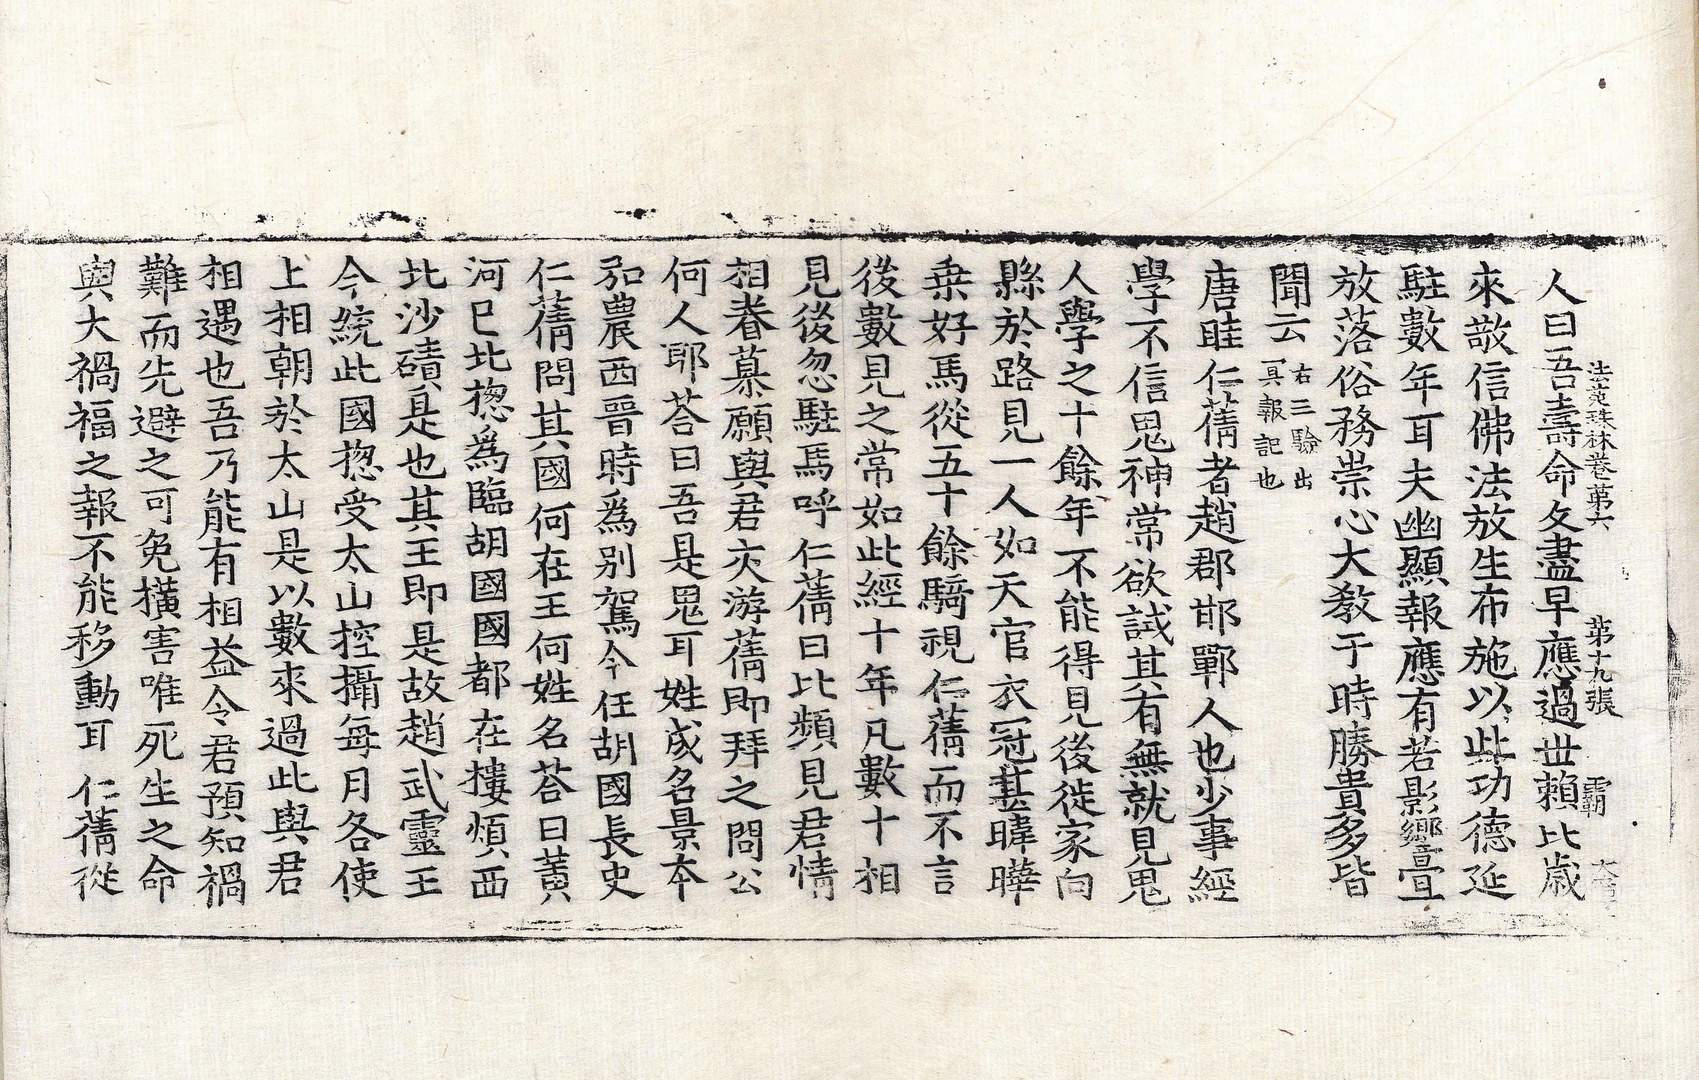 法苑珠林卷第六　第十九張　霸
人曰吾壽命久盡早應過世賴比歲
來敬信佛法放生布施以此功德延
駐數年耳夫幽顯報應有若影響亶
放落俗務崇心大教于時勝貴多皆
聞云右三驗出冥報記也
唐眭仁蒨者趙郡邯鄲人也少事經
學不信鬼神常欲試其有無就見鬼
人學之十餘年不能得見後徙家向
縣於路見一人如天官衣冠甚暐曄
乗好馬從五十餘騎視仁蒨而不言
後數見之常如此經十年凡數十相
見後忽駐馬呼仁蒨曰比頻見君情
相眷慕願與君交游蒨即拜之問公
何人耶荅曰吾是鬼耳姓成名景本
弘農西晉時爲別駕今任胡國長史
仁蒨問其國何在王何姓名荅曰黃
河已北揔爲臨胡國國都在樓煩西
北沙磧是也其王即是故趙武靈王
今統此國揔受太山控攝每月各使
上相朝於太山是以數來過此與君
相遇也吾乃能有相益令君預知禍
難而先避之可免橫害唯死生之命
與大禍福之報不能移動耳仁蒨從